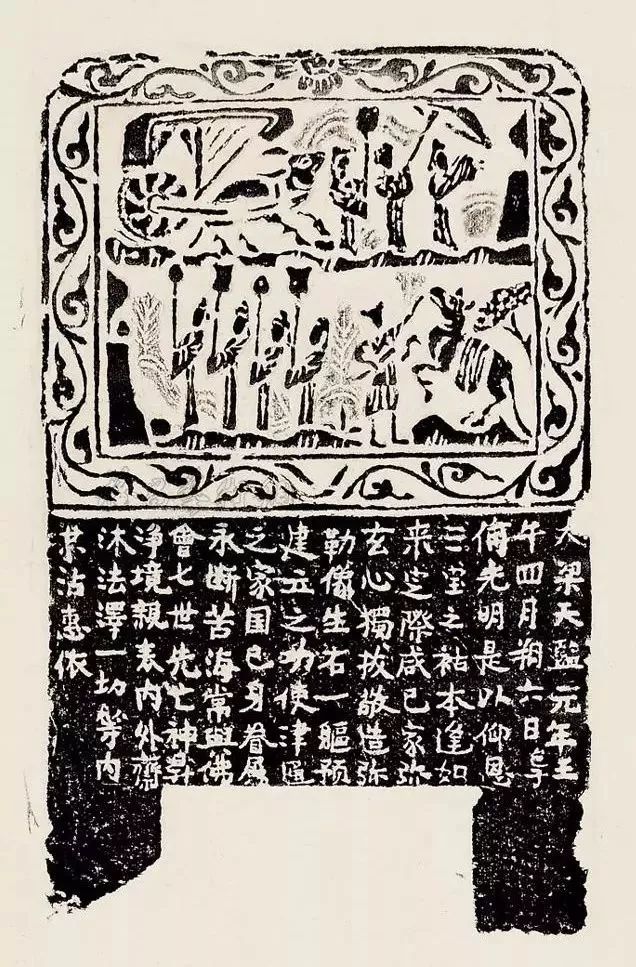 大梁天監元年壬
午四月朔六日
光明是以仰恩
三之祜本逢如
来之際咸已家弥
玄心獨拔敬造弥
勒像生右一軀预
建立之功使津通
之家国已身眷属
永断苦海常與佛
會七世先亡神昇
淨境親表内外齋
沐法澤一切等内
其沾惠依